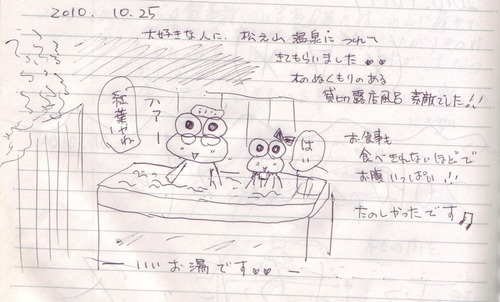 2010. 10.25
大好きな人に、松之山温泉につれて
きてもらいました
木のぬくもりのある
貸切露店風呂 素敵でした!!
お食事も
食べきれないほどで
お腹いっぱい!!
たのしかったです♫
紅葉やね
ハァー
はい
いいお湯です